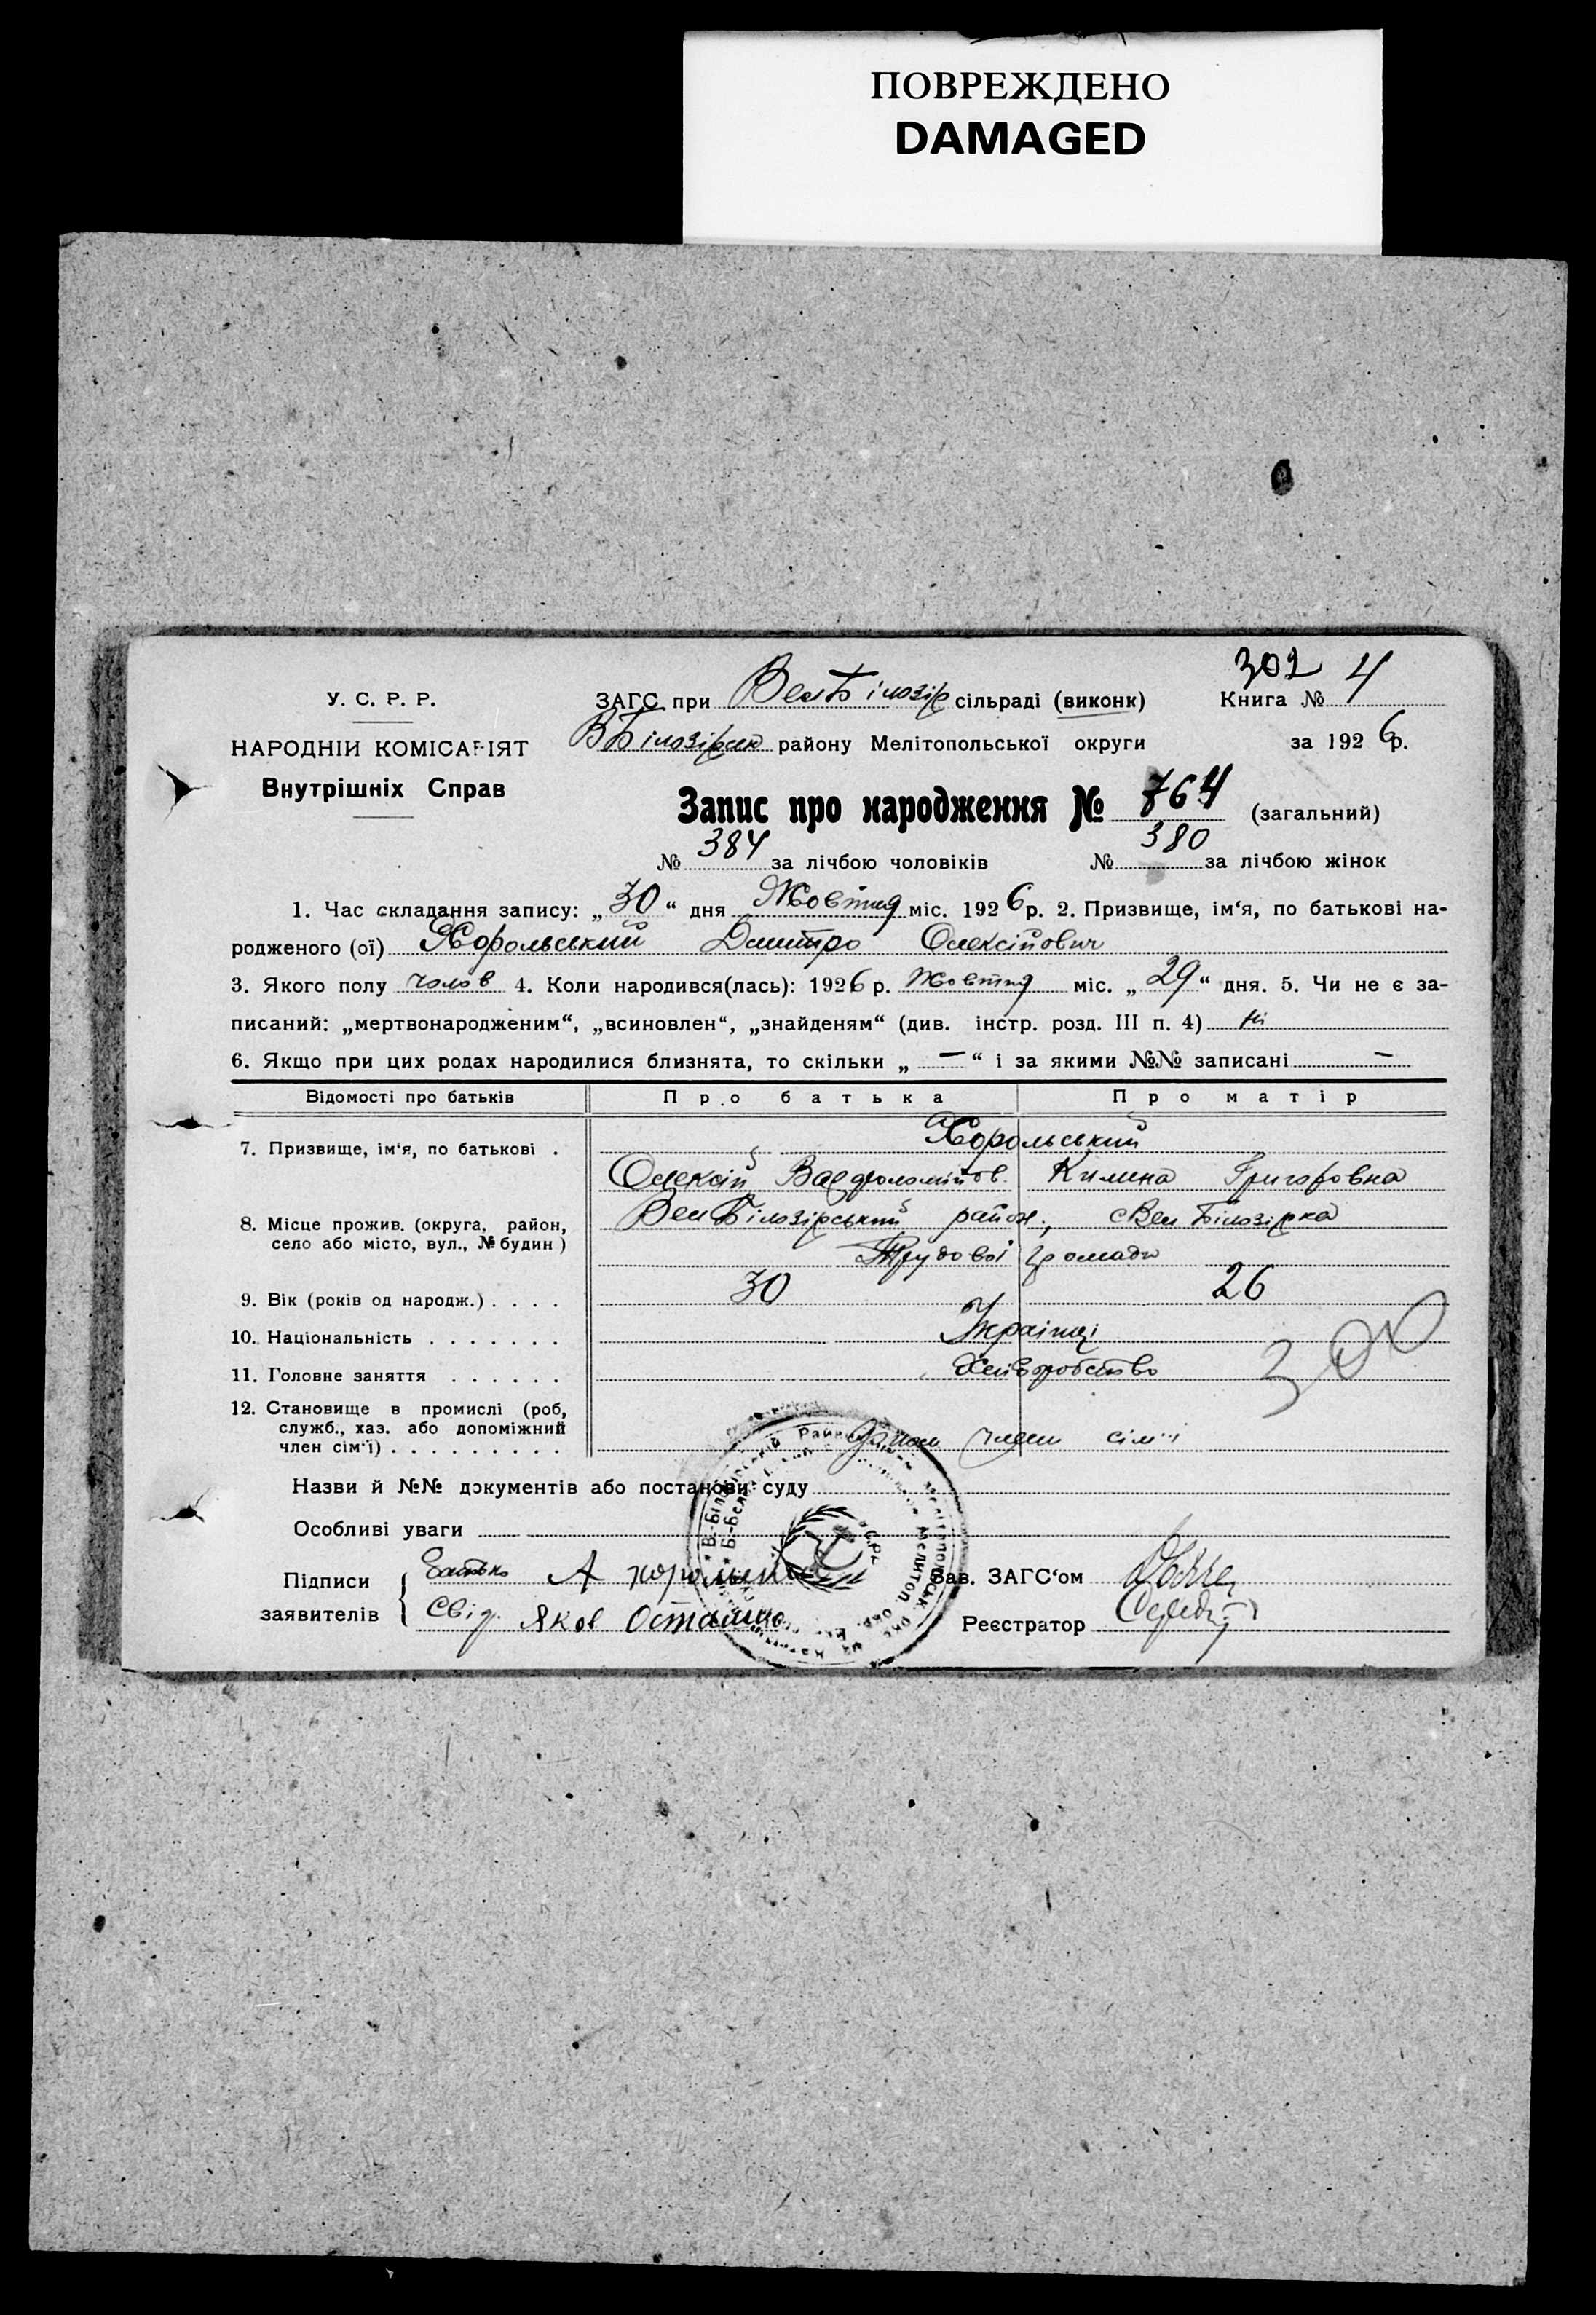 ПОВРЕЖДЕНО
DAMAGED
302 4
У. С. Р. Р. ЗАГС при ВелБілозір сільраді (виконк) Книга №
НАРОДНІЙ КОМІСАРІЯТ ВБілозірськ району Мелітопольської округи за 1926 р.
Внутрішніх Справ
Запис про народження № 764 (загальний)
№ 384 за лічбою чоловіків № 380 за лічбою жінок
1. Час складання запису: „30“ дня Жовтня міс. 1926 р. 2. Призвище, ім‘я, по батькові на-
родженого (ої) Хорольський Дмитро Олексійович
3. Якого полу чолов 4. Коли народився(лась): 1926 р. Жовтня міс. „29“ дня. 5. Чи не є за-
писаний: „мертвонародженим“, „всиновлен“, „знайденям“ (див. інстр. розд. III п. 4) ні
6. Якщо при цих родах народилися близнята, то скільки „—“ і за якими №№ записані —
Відомості про батьків Про батька Про матір
7. Призвище, ім‘я, по батькові . Хорольський
Олексій Вар Килина Григоровна
8. Місце прожив. (округа, район, село або місто, вул., № будин) ВелБілозірський район., с Вел Білозірка
Трудової громади
9. Вік (років од народж.) . . . . 30 26
10. Національність . . . . . . . Українці
11. Головне заняття . . . . . . Хліборобство
12. Становище в промислі (роб, служб., хаз. або допоміжний член сім‘ї) . . . . . . . . . член сім'ї
Назви й №№ документів або постанови суду
Особливі уваги
Підписи заявителів батько А Зав. ЗАГС‘ом
Свід. Яков Реєстратор
300